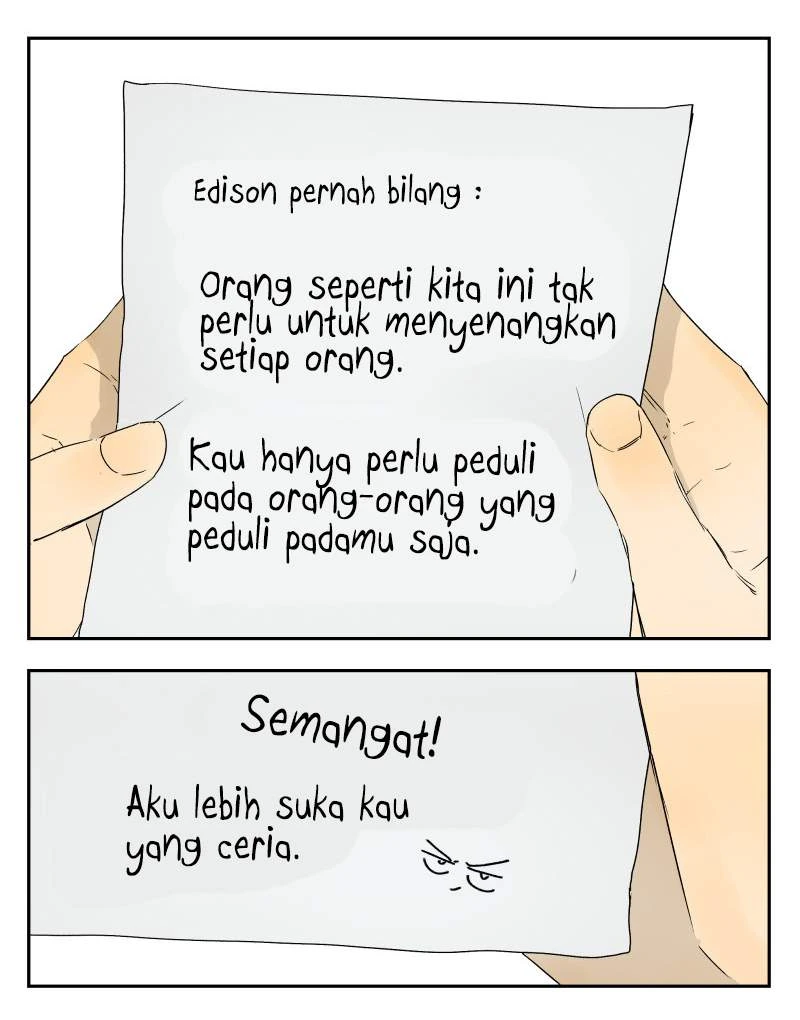 Edison pernah bilang :
Orang seperti kita ini tak
perlu untuk menyenangkan
setiap orang.
Kau hanya perlu peduli
pada orang-orang yang
peduli padamu saja.
Semangat!
Aku lebih suka kau
yang ceria.